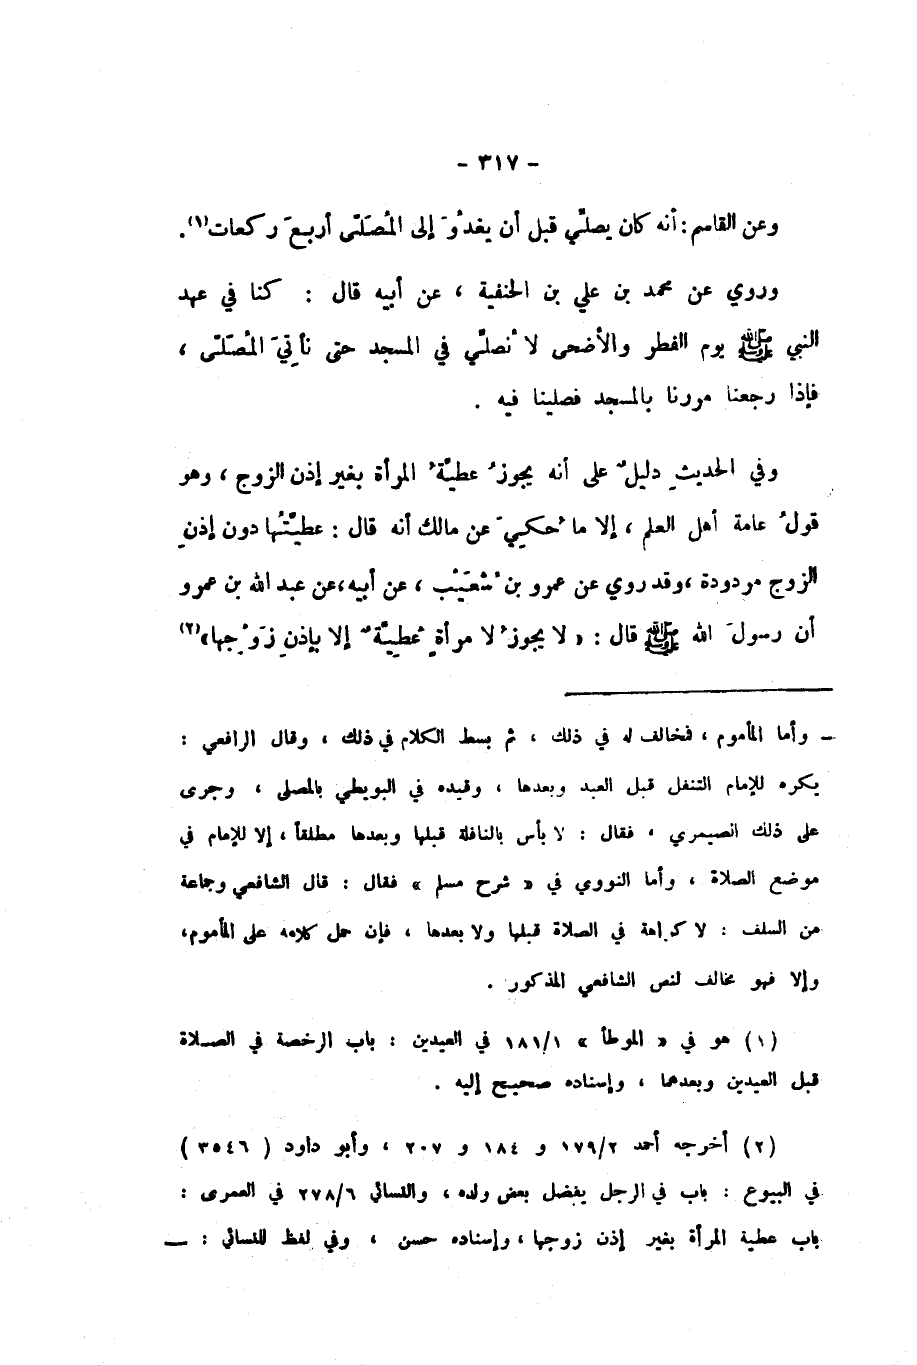 - ٣١٧ -
وعن القاسم : أنه كان يصلّي قبل أن يغدُوَ إلى المُصَلّى أربعَ ركعات(١).
وروي عن محمد بن علي بن الحنفية ، عن أبيه قال : كنا في عهد
النبي ﷺ يوم الفطر والأضحى لا نُصلّي في المسجد حتى نأتيَ المُصَلّى ،
فإذا رجعنا مررنا بالمسجد فصلينا فيه .
وفي الحديثِ دليلٌ على أنه يجوزُ عطيّةُ المرأة بغير إذن الزوج ، وهو
قولُ عامة أهل العلم ، إلا ما حُكيَ عن مالك أنه قال : عطيّتُها دون إذنِ
الزوج مردودة ، وقد روي عن عمرو بن شُعَيْب ، عن أبيه، عن عبد الله بن عمرو
أن رسولَ الله ﷺ قال : « لا يجوزُ لا مرأةٍ عطيّةٌ إلا بإذنِ زَوْجِها»(٢)
ــ وأما المأموم ، فخالف له في ذلك ، ثم بسط الكلام في ذلك ، وقال الرافعي :
يكره للإمام التنفل قبل العيد وبعدها ، وقيده في البويطي بالمصلى ، وجرى
على ذلك الصيمري ، فقال : لا بأس بالنافلة قبلها وبعدها مطلقاً ، إلا للإمام في
موضع الصلاة ، وأما النووي في « شرح مسلم » فقال : قال الشافعي وجماعة
من السلف : لا كراهة في الصلاة قبلها ولا بعدها ، فإن حمل كلامه على المأموم،
وإلا فهو مخالف لنص الشافعي المذكور .
(١) هو في « الموطأ » ١٨١/١ في العيدين : باب الرخصة في الصلاة
قبل العيدين وبعدهما ، وإسناده صحيح إليه .
(٢) أخرجه أحمد ١٧٩/٢ و ١٨٤ و ٢٠٧ ، وأبو داود ( ٣٥٤٦ )
في البيوع : باب في الرجل يفضل بعض ولده ، والنسائي ٢٧٨/٦ في العمرى :
باب عطية المرأة بغير إذن زوجها ، وإسناده حسن ، وفي لفظ للنسائي : ــ